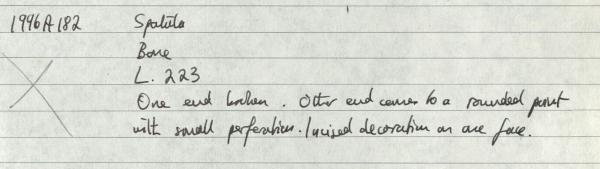 1996A182 Spatula
Bone
L. 223
One end broken. Other end comes to a rounded point
with small perforation. Incised decoration on one face.